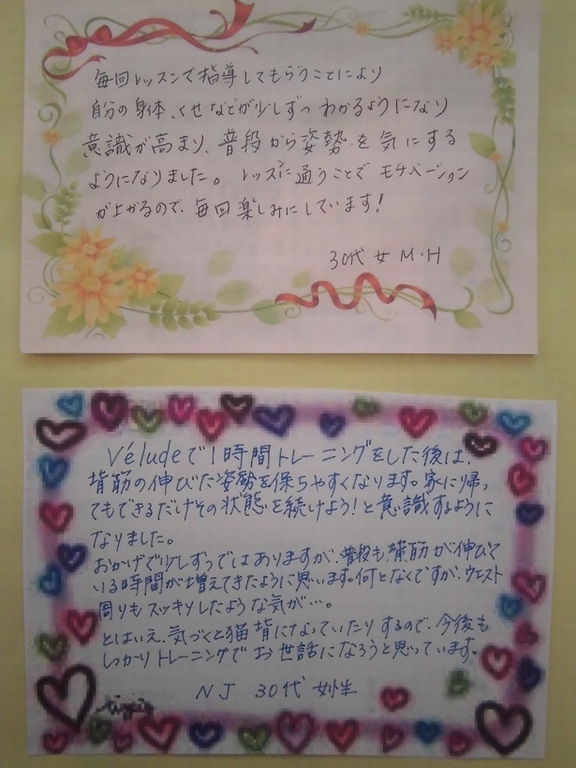 毎回レッスンで指導してもらうことにより
自分の身体、くせなどが少しずつわかるようになり
意識が高まり、普段から姿勢を気にする
ようになりました。レッスンに通うことでモチベーション
が上がるので、毎回楽しみにしています!
30代 女 M・H
Véludeで1時間トレーニングをした後は、
背筋の伸びた姿勢を保ちやすくなります。家に帰っ
てもできるだけその状態を続けよう!と意識するように
なりました。
おかげで少しずつではありますが、普段も背筋が伸びて
いる時間が増えてきたように思います。何となくですが、ウエスト
周りもスッキリしたような気が…。
とはいえ、気づくと猫背になっていたりするので、今後も
しっかりトレーニングでお世話になろうと思っています。
NJ 30代 女性